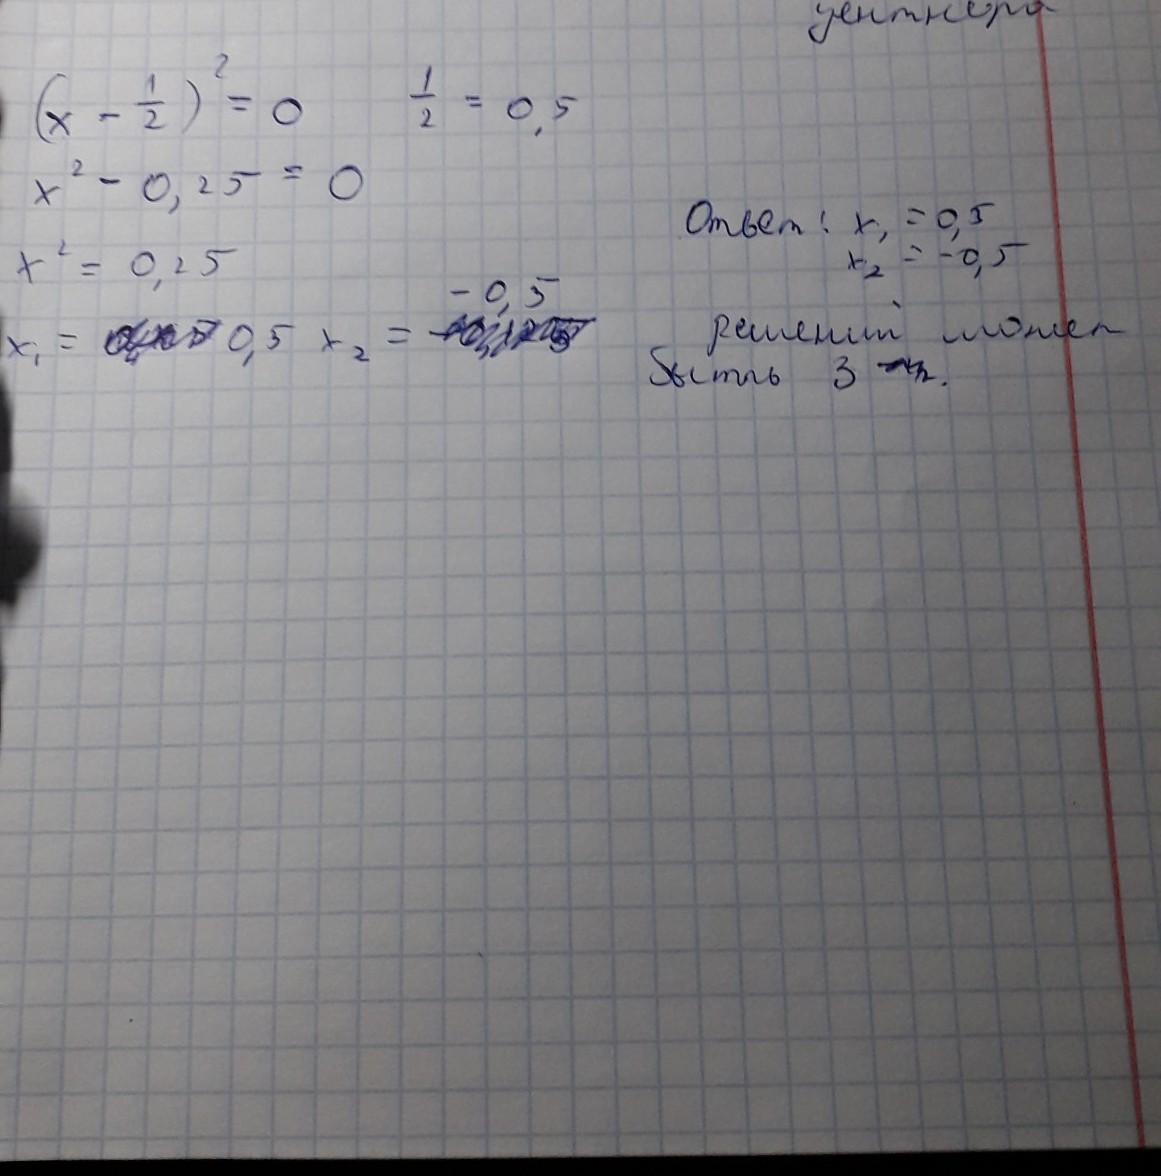 центнера
(x - 1/2)² = 0 1/2 = 0,5
x² - 0,25 = 0
x² = 0,25
x₁ = 0,5 x₂ = -0,5
Ответ: x₁ = 0,5
x₂ = -0,5
решений может
быть 3